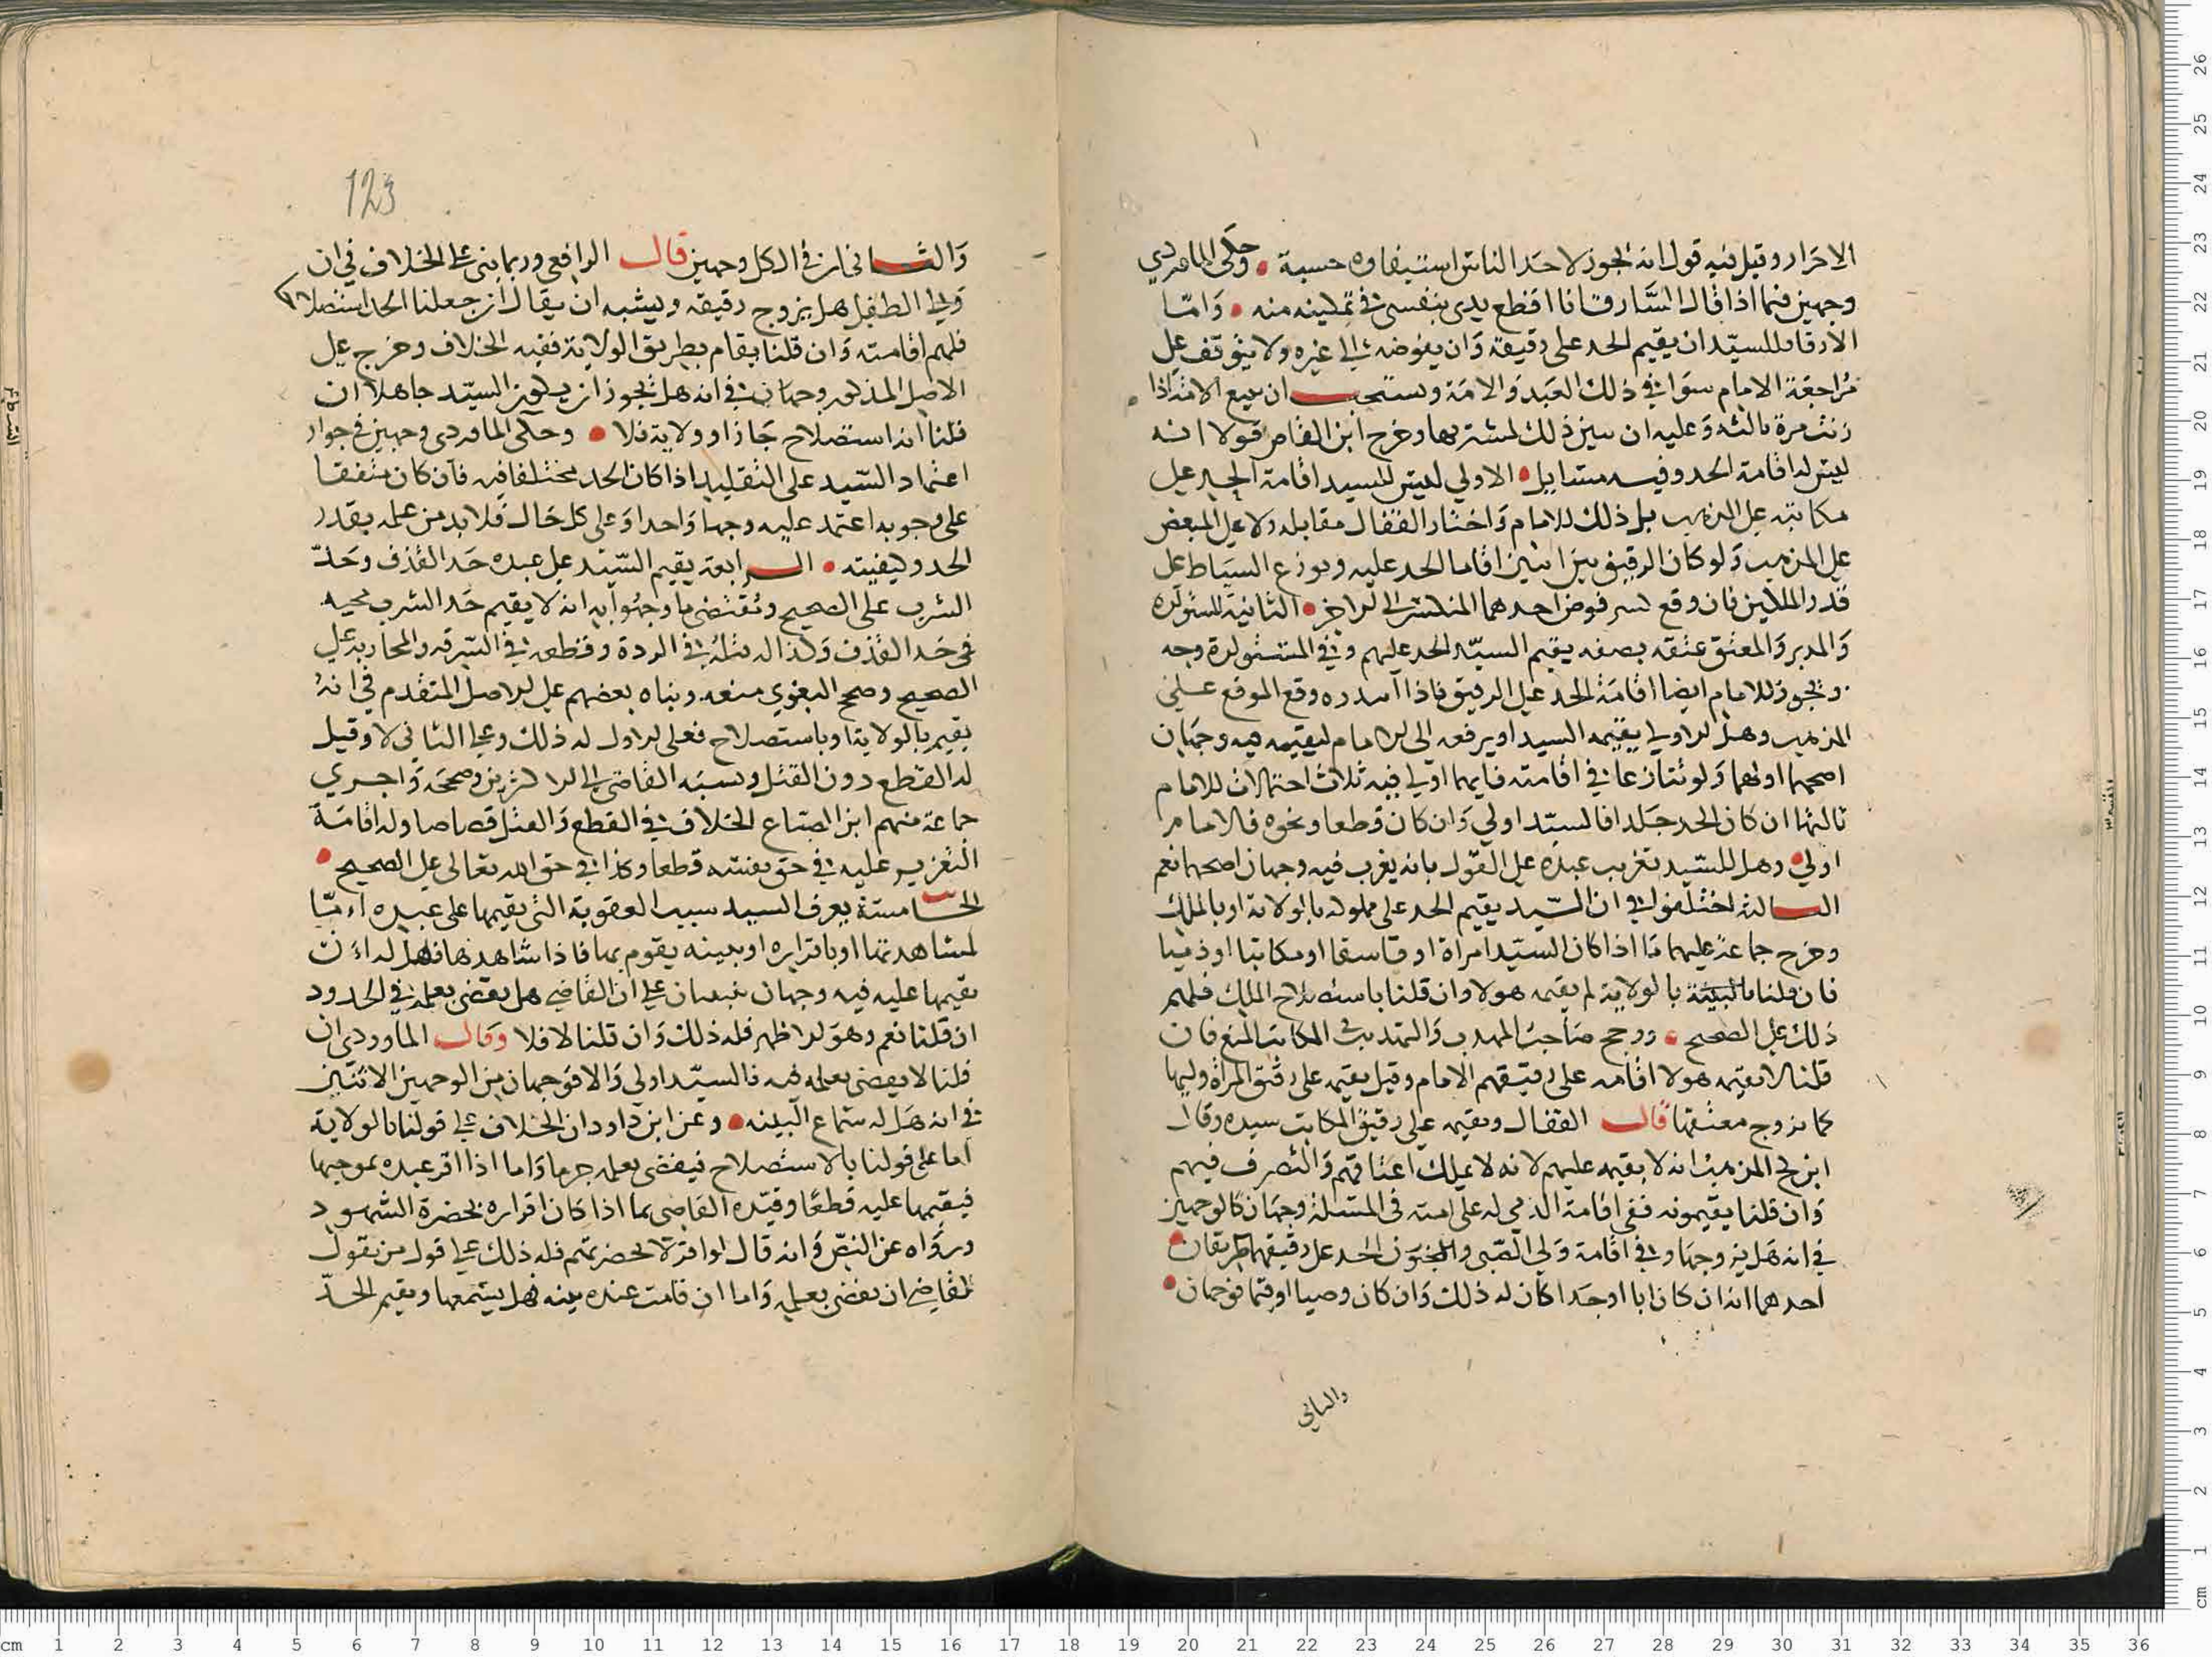 الاحرار وقيل فيه قول انه يجوز لاحد الناس استيفاوه حسبة وحكى الماوردي
وجهين فيما اذا قال السارق انا اقطع يدي بنفسي في تمكينه منه وَامّا
الارقا فللسيّد ان يقيم الحد على رقيقه وَان يفوضه الى غيره ولا يتوقف على
مُراجعة الامام سوَا في ذلك العَبد وَالامَة ويستحب ان يبيع الامة اذا
زنت مرة ثالثه وَعليه ان يبين ذلك لمشتريها وخرج ابن القاص قولا انه
ليس له اقامة الحد وفيه مسايل الاولي ليس للسيد اقامة الحد على
مكاتبه على المذهب بل ذلك للامام وَاختار القفال مقابله ولا على المبعض
على المذهب وَلو كان الرقيق بين اثنين اقاما الحد عليه ويوزع السياط على
قدر الملكين فان وقع كسر فوض احدهما المنكسر الى الاخر الثانية المستولده
وَالمدبر وَالمعتق عتقه بصفه يقيم السيّد الحد عليهم وفي المستولدة وجه
ويجوز للامام ايضا اقامَة الحد على الرقيق فاذا ابتدره وقع الموقع على
المذهب وهل الاولي يقيمه السيد او يرفعه الى الامام ليقيمه فيه وجهَان
اصحهما اولهما وَلو تنازعا في اقامته فايهما اولي فيه ثلاث احتمالات للامام
ثالثها ان كان الحد جَلدا فالسيّد اولي وَان كان قطعا ونحوه فالامام
اولي وهل للسّيد تغريب عبده على القول بانه يغرب فيه وجهان اصحهما نعم
الثالثة اختلفوا في ان السّيد يقيم الحد على مملوكه بالولاية او بالملك
وخرج جماعة عليهما مَا اذا كان السيّد امراة او فاسقا او مكاتبا او ذميا
فان قلنا بالولاية لم يقمه هولا وان قلنا باستصلاح الملك فلهم
ذلك على الصحيح ورجح صَاحبُ المهذب وَالتهذيب في المكاتب المنع فان
قلنا لا يقيمه هولا اقامه على رقيقهم الامام وقيل يقيمه على رقيق المراة وليها
كما يزوج معتقتها قال القفال ويقيمه على رقيق المكاتب سيده وقال
ابن كج المذهب انه لا يقيمه عليهم لانه لا يملك اعتاقهم وَالتصرف فيهم
وَان قلنا يقيمونه ففي اقامة الذمي له على امته في المسئلة وجهَان كالوجهين
في انه هَل يزوجهَا وفي اقامة وَلي الصّبي والمجنون الحد على رقيقهما طريقان
احدهما انه ان كان ابا او جَدا كان له ذلك وَان كان وصيا او قيما فوجهان
والثاني
123
وَالثاني ان في الكل وجهين قال الرافعي وربما بني على الخلاف في ان
وَلي الطفل هل يزوج رقيقه ويشبه ان يقال ان جعلنا الحد استصلاحا
فلهم اقامته وَان قلنا يقام بطريق الولاية ففيه الخلاف وخرج على
الاصل المذكور وجهان في انه هل يجوز ان يكون السيّد جاهلا ان
قلنا انه استصلاح جَاز او ولاية فلا وحكى الماوردي وجهين في جواز
اعتماد السّيد على التقليد اذا كان الحد مختلفا فيه فان كان متفقا
على وجوبه اعتمد عليه وجها وَاحدا وَعلى كل حَال فلا بد من علمه بقدر
الحد وكيفيته الرابعة يقيم السّيد على عبده حَد القذف وحَدّ
الشرب على الصحيح ومُقتضى ما وجهُوا به انه لا يقيم حَد الشرب مجيه
في حَد القذف وَكذا له قتلهُ في الردة وقطعه في السّرقه والمحاربة على
الصحيح وصحح البغوي منعه وبناه بعضهم على الاصل المتقدم في انهُ
يقيم بالولاية او باستصلاح فعلى الاول له ذلك وعلى الثاني لا وقيل
له القطع دون القتل ونسبَه القاضي الى الاكثرين وصححَه وَاجري
جماعة منهم ابن الصباع الخلاف في القطع وَالقتل قصاصا وله اقامَة
التعزير عليه في حق نفسه قطعا وكذا في حق الله تعالى على الصحيح
الخامسة يعرف السيد سبب العقوبة التي يقيمها على عبده امّا
لمشاهدتها او باقراره او ببينه يقوم بها فاذا شاهدها فهل له ان
يقيمها عليه فيه وجهان ينبنيان على ان القاضي هل يقضي بعلمه في الحدود
ان قلنا نعم وهوَ الاظهر فله ذلك وَان قلنا لا فلا وقال الماوردي ان
قلنا لا يقضي بعلمه فيه فالسيّد اولي وَالا فوَجهان من الوجهين الاتيين
في انه هَل له سماع البينه وعن ابن داود ان الخلاف على قولنا بالولاية
اما على قولنا بالاستصلاح فيقضي بعلمه جزما وَاما اذا اقر عبده بموجبها
فيقيمها عليه قطعًا وقيّده القاضي بما اذا كان اقراره بحضرة الشهود
ورَوَاه عن النصّ وَانه قال لو اقر لا بحضرتهم فله ذلك على قول من يقول
للقاضي ان يقضي بعلمه وَاما ان قامت عنده بينه فهل يسمعها ويقيم الحدّ